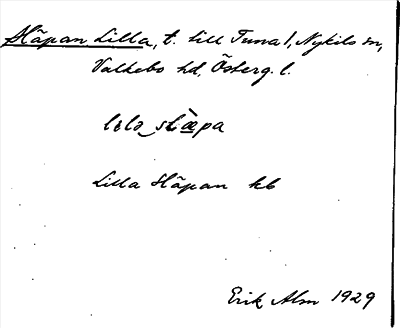 Släpan Lilla, t. till Tuna 1, Nykils sn,
Valkebo hd, Österg. l.
Lilla Släpan kb
Erik Alm 1929